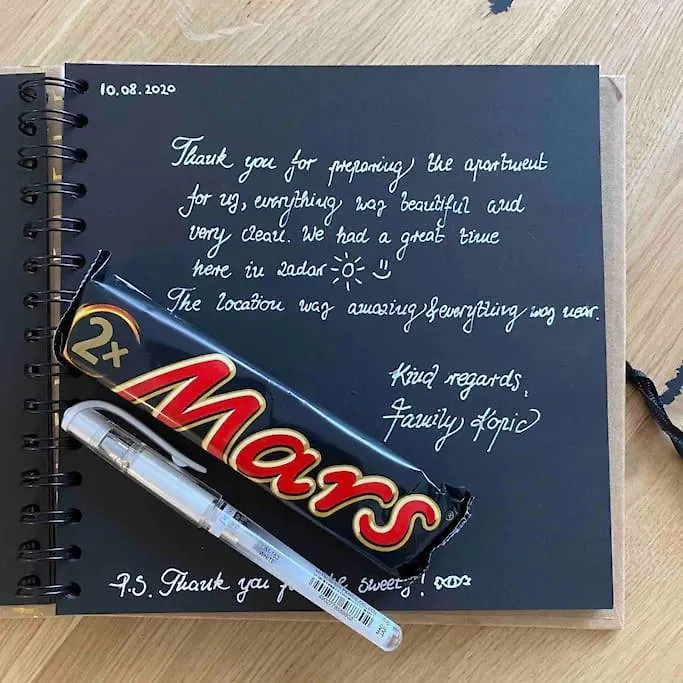 10.08.2020
Thank you for preparing the apartment
for us, everything was beautiful and
very clean. We had a great time
here in Zadar
The location was amazing & everything was near.
Kind regards,
Family Kopic
2x
Mars
WHITE
P.S. Thank you the sweets!